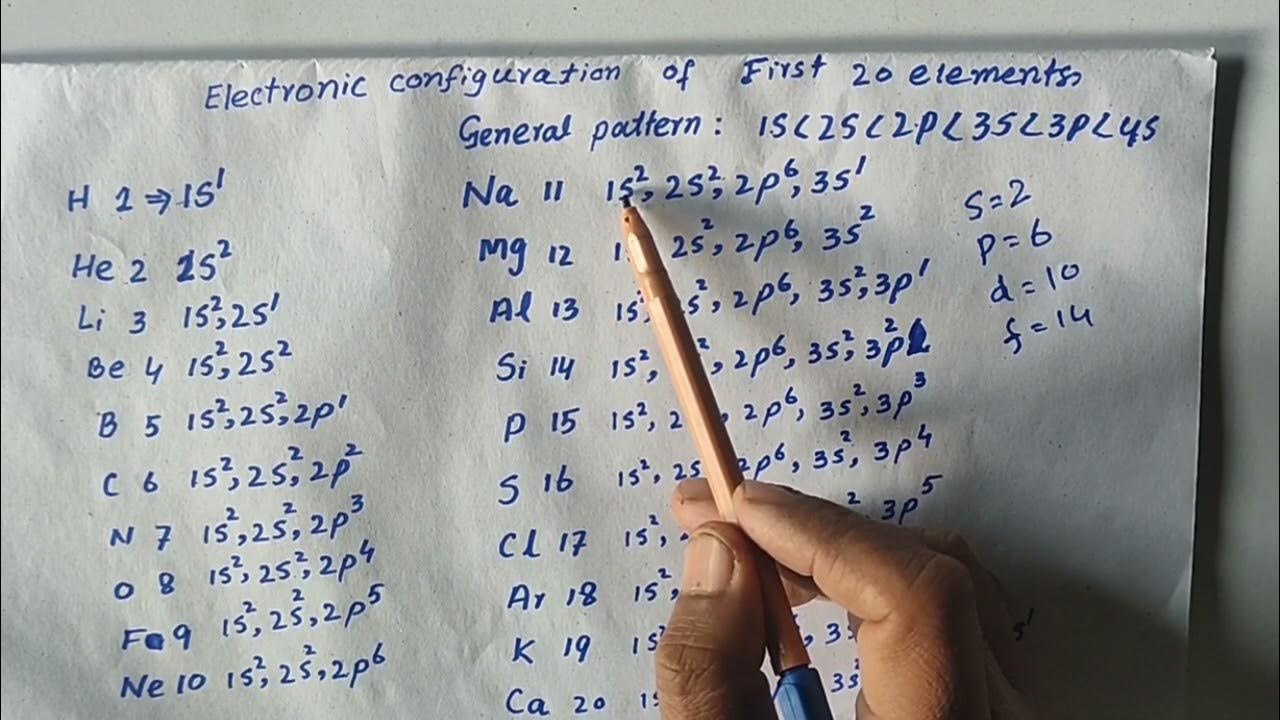 Electronic configuration of First 20 elements
General pattern: 1S<2S<2P<3S<3P<4S
H 1 ⇒ 1S¹
He 2 1S²
Li 3 1S², 2S¹
Be 4 1S², 2S²
B 5 1S², 2S², 2P¹
C 6 1S², 2S², 2P²
N 7 1S², 2S², 2P³
O 8 1S², 2S², 2P⁴
F 9 1S², 2S², 2P⁵
Ne 10 1S², 2S², 2P⁶
Na 11 1S², 2S², 2P⁶, 3S¹
Mg 12 2S², 2P⁶, 3S²
Al 13 1S², S², 2P⁶, 3S², 3P¹
Si 14 1S², ², 2P⁶, 3S², 3P²
P 15 1S², 2 , 2P⁶, 3S², 3P³
S 16 1S², 2S 2P⁶, 3S², 3P⁴
Cl 17 1S², ² 3P⁵
Ar 18 1S²,
K 19 1S² , 3S S¹
Ca 20 1S 3S²
S=2
P=6
d=10
f=14